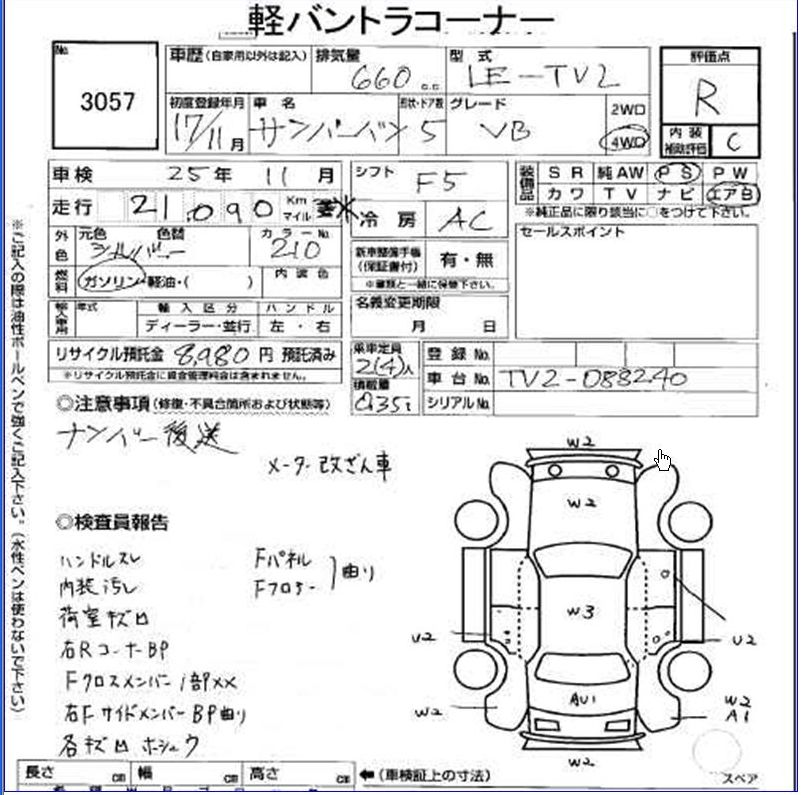 軽バントラコーナー
No. 3057
車歴 (自家用以外は記入)
排気量 660 c.c
型式 LE-TV2
評価点 R
初度登録年月 17/11月
車名 サンバーバン
形状・ドア数 5
グレード VB
2WD
4WD
内装補助評価 C
車検 25年 11月
シフト F5
装備品 SR 純AW PS PW
カワ TV ナビ エアB
※純正品に限り該当に○をつけて下さい。
走行 21,090 Km マイル
冷房 AC
外色 元色 シルバー 色替
カラーNo. 210
セールスポイント
新車整備手帳(保証書付) 有・無
※書類と一緒に保管下さい。
燃料 ガソリン・軽油・( )
内装色
名義変更期限
月 日
輸入車用 年式
輸入区分 ディーラー・並行
ハンドル 左・右
リサイクル預託金 8,980円 預託済み
※リサイクル預託金に資金管理料金は含まれません。
乗車定員 2(4)人
積載量
登録No.
車台No. TV2-088240
シリアルNo.
※ご記入の際は油性ボールペンで強くご記入下さい。(水性ペンは使わないで下さい)
◎注意事項(修復・不具合箇所および状態等)
ナンバー後送
メーター改ざん車
◎検査員報告
ハンドルスレ
内装汚レ
荷室キズ凹
右RコーナーBP
Fクロスメンバー1部XX
右FサイドメンバーBP曲り
各キズ凹ホシュウ
Fパネル
Fフロアー
曲り
W2
W2
W3
U2
U2
AU1
W2
W2
A1
W2
スペア
長さ cm 幅 cm 高さ cm
←(車検証上の寸法)